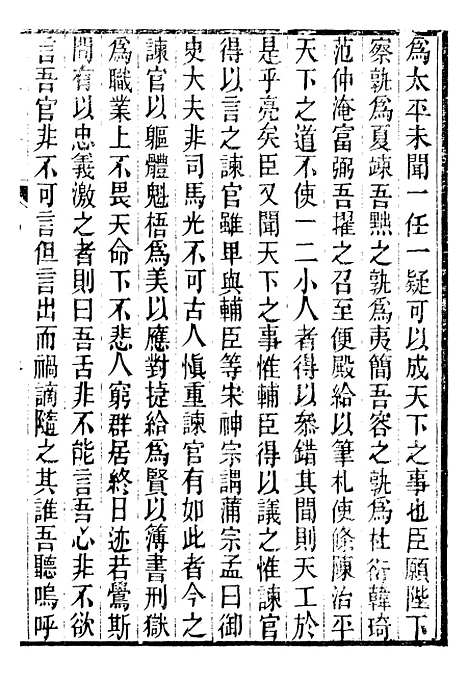 爲太平未聞一任一疑可以成天下之事也臣願陛下
察孰爲夏竦吾黜之孰爲夷簡吾容之孰爲杜衍韓琦
范仲淹富弼吾擢之召至便殿給以筆札使條陳治平
天下之道不使一二小人者得以叅錯其間則天工於
是乎亮矣臣又聞天下之事惟輔臣得以議之惟諫官
得以言之諫官雖卑與輔臣等宋神宗謂蒲宗孟曰御
史大夫非司馬光不可古人愼重諫官有如此者今之
諫官以軀體魁梧爲美以應對捷給爲賢以簿書刑獄
爲職業上不畏天命下不悲人窮群居終日迹若鶯斯
間有以忠義激之者則曰吾舌非不能言吾心非不欲
言吾官非不可言但言出而禍謫隨之其誰吾聽嗚呼